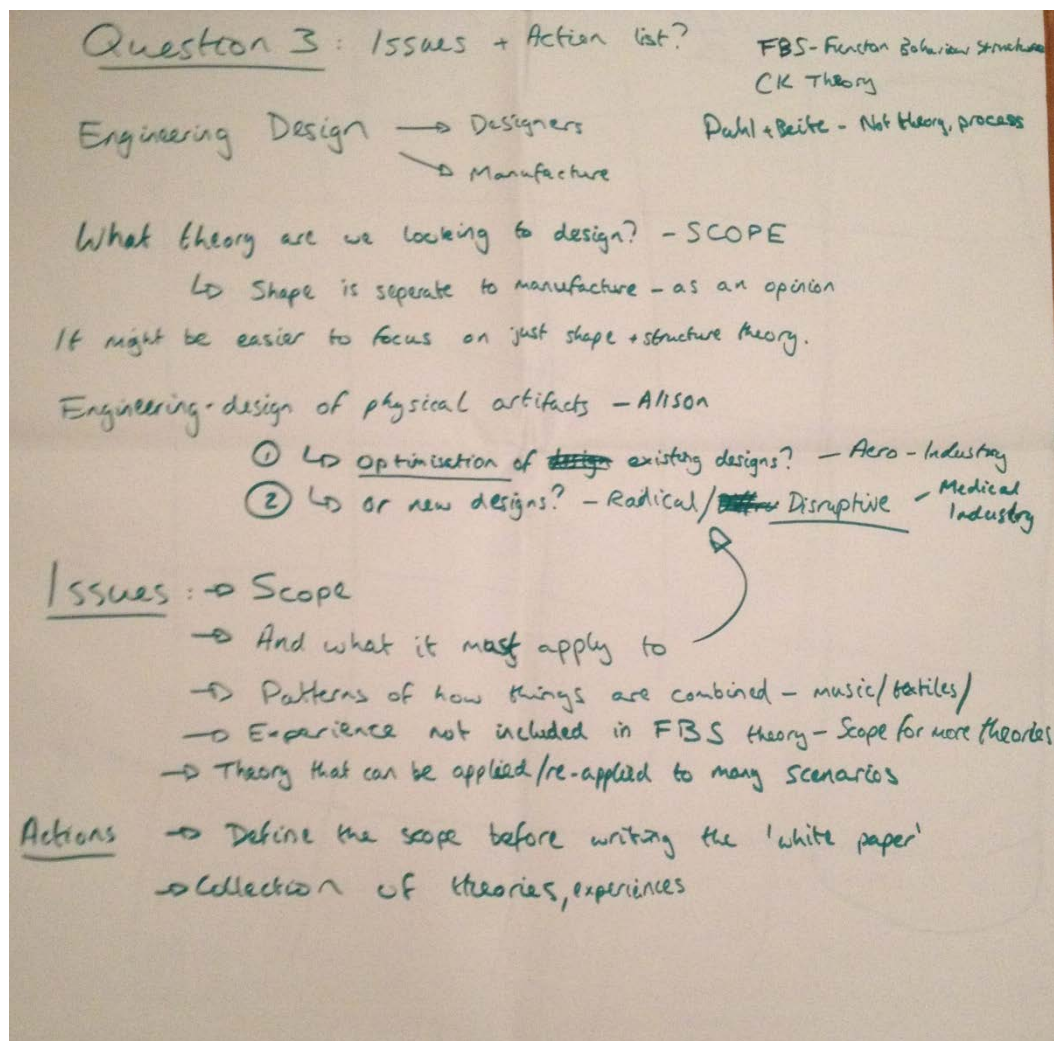 Question 3: Issues + Action list?
FBS - Functon Behaviour Structure
CK Theory
Pahl + Beite - Not theory, process
Engineering Design → Designers
→ Manufacture
What theory are we looking to design? - SCOPE
↳ Shape is seperate to manufacture - as an opinion
It might be easier to focus on just shape + structure theory.
Engineering design of physical artifacts - Alison
① ↳ Optimisation of existing designs? - Aero - Industry
② ↳ or new designs? - Radical / Disruptive - Medical Industry
Issues: → Scope
→ And what it must apply to
→ Patterns of how things are combined - music/textiles/
→ Experience not included in FBS theory - Scope for more theories
→ Theory that can be applied/re-applied to many scenarios
Actions → Define the scope before writing the 'white paper'
→ Collection of theories, experiences